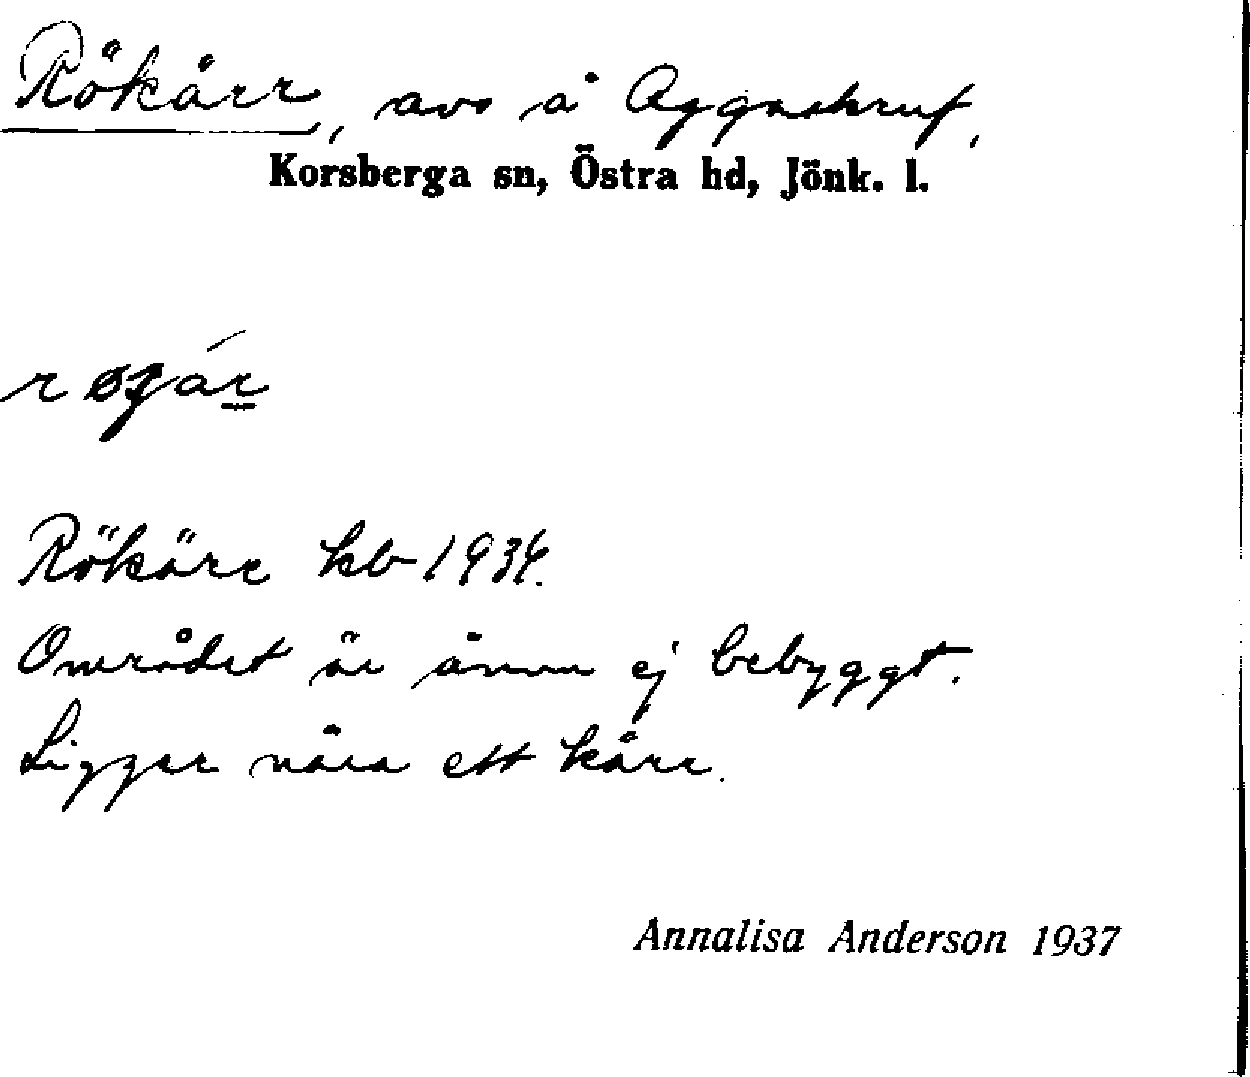 Rökärr, avs å Aggaskruf,
Korsberga sn, Östra hd, Jönk. l.
Rökärr kb 1934.
Området är ännu ej bebyggt.
Ligger nära ett kärr.
Annalisa Anderson 1937